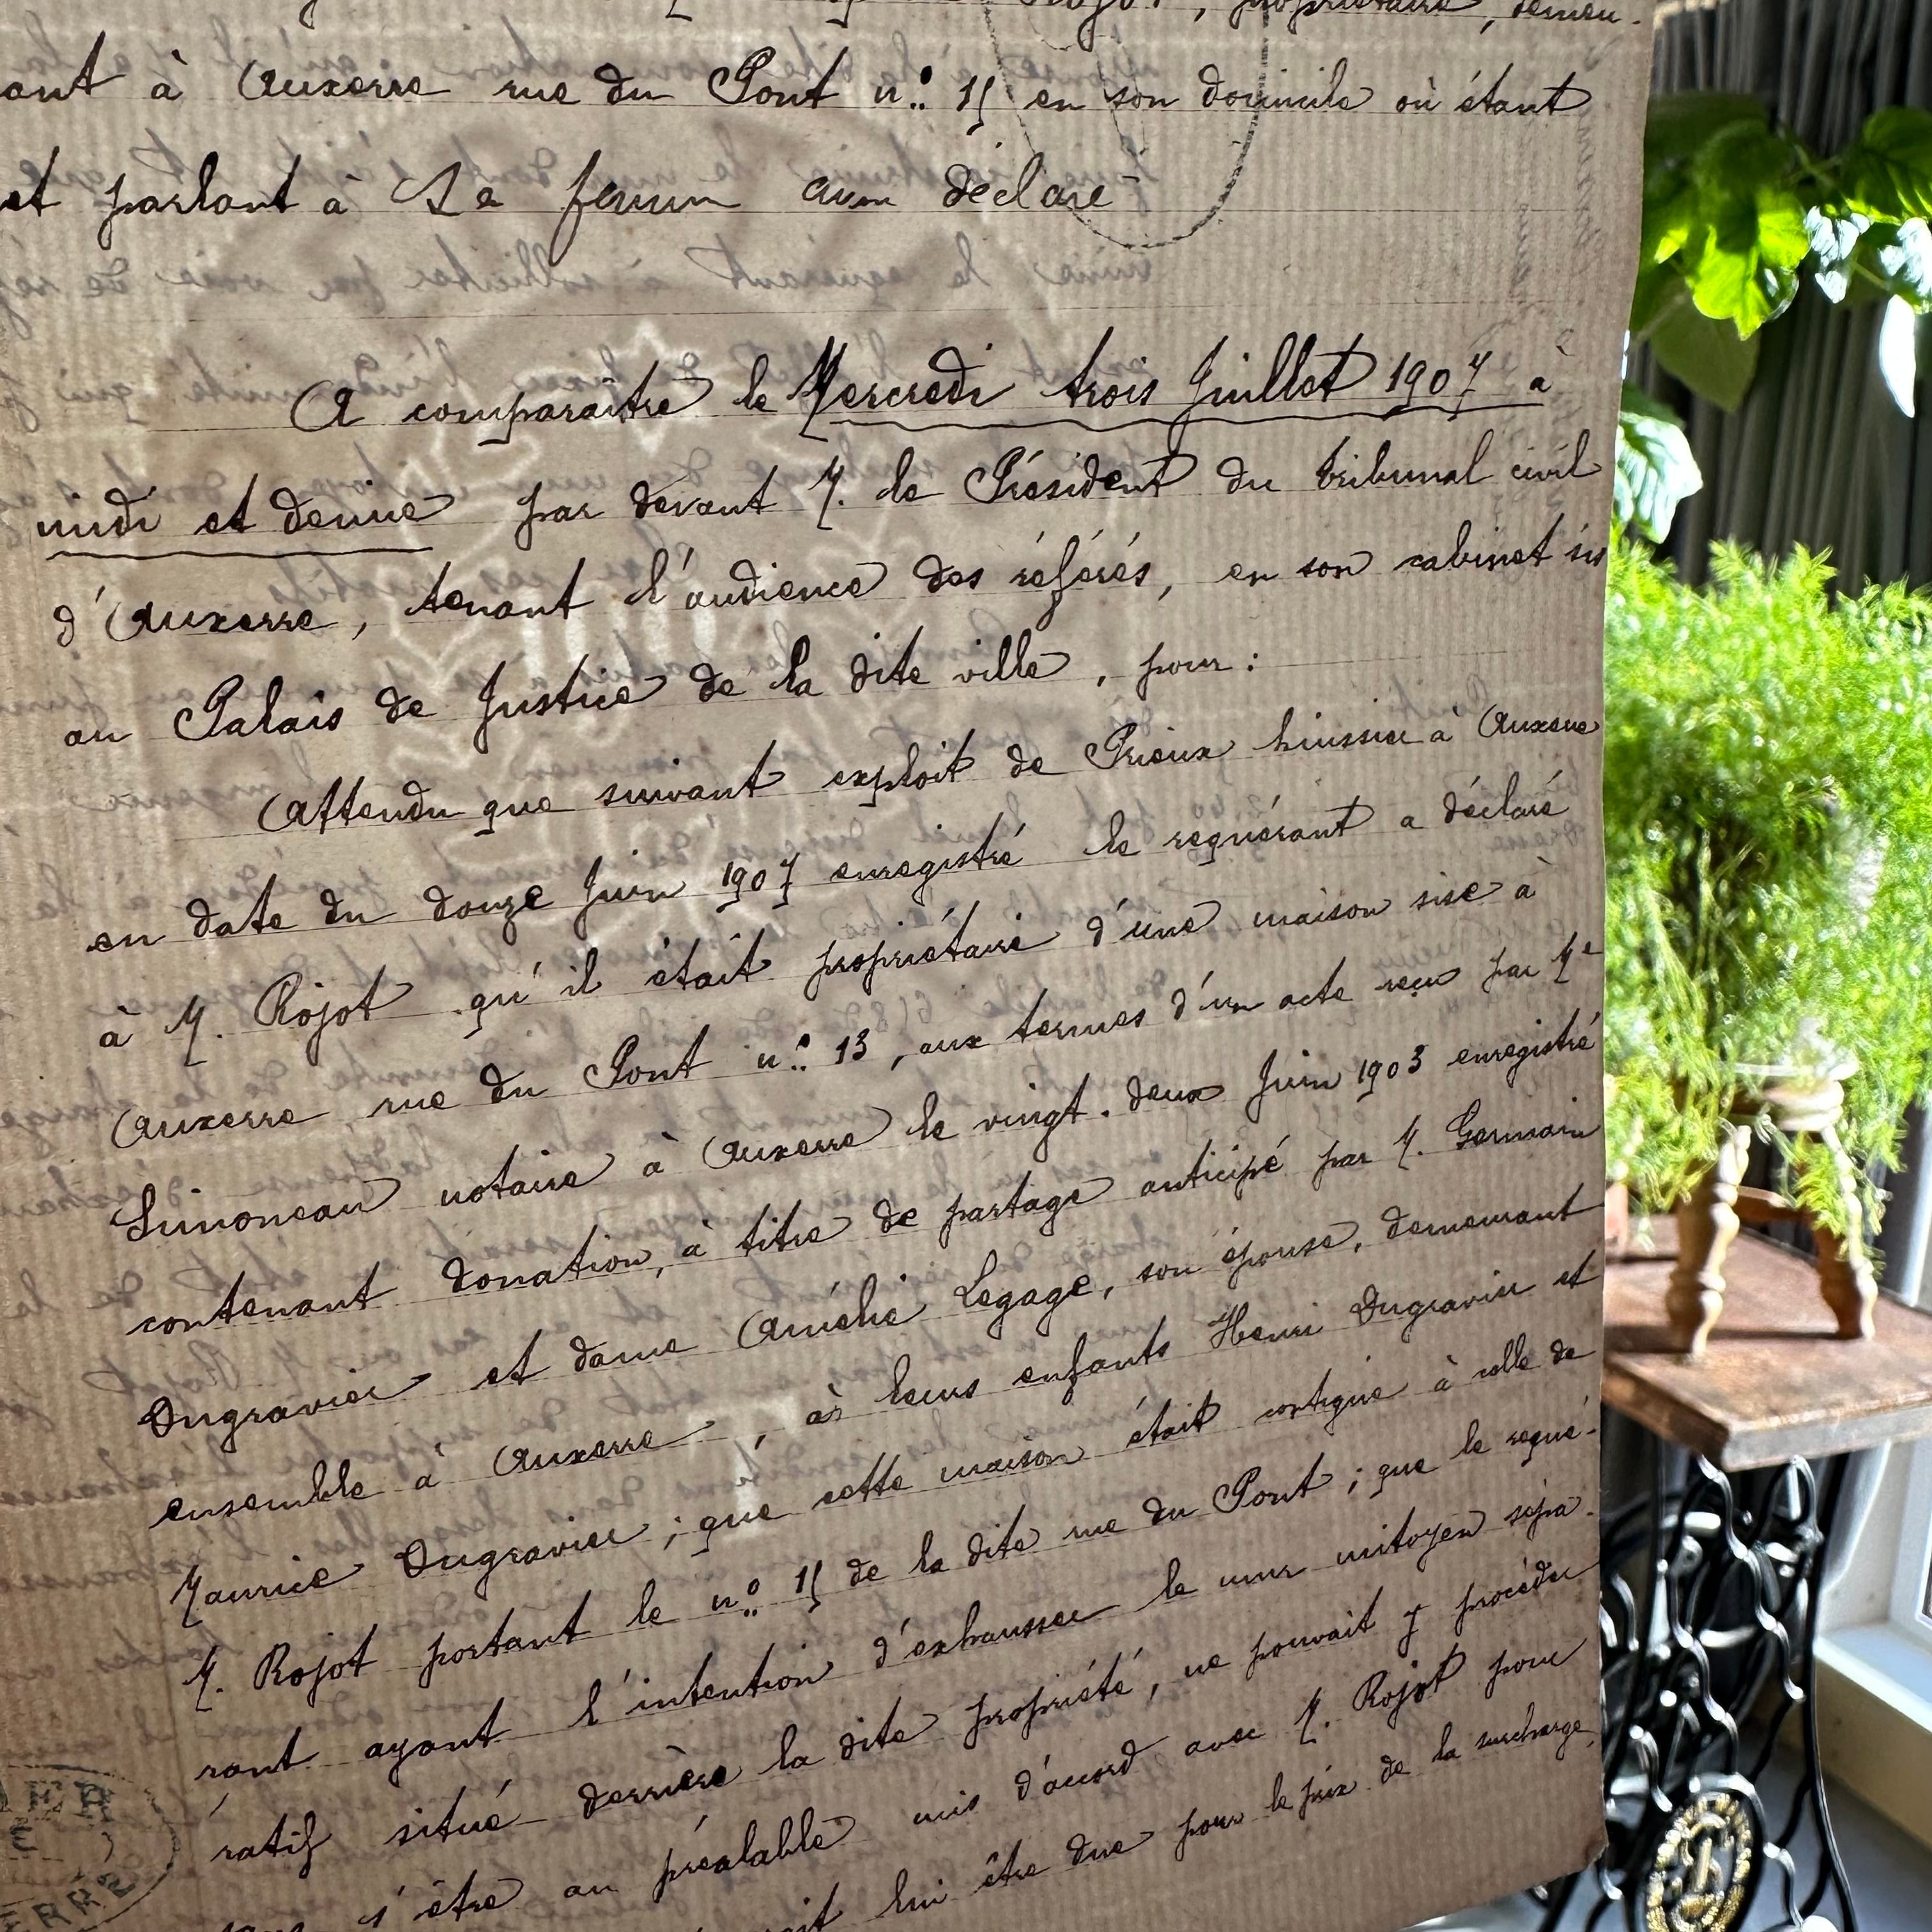 propriétaire, demeu-
ant à Auxerre rue du Pont n° 15 en son domicile où étant
et parlant à Sa femme déclaré
A comparaître le Mercredi trois Juillet 1907 à
midi et demie par devant M. le Président du tribunal civil
d'Auxerre, tenant l'audience des référés, en son cabinet sis
au Palais de Justice de la dite ville, pour :
Attendu que suivant exploit de Prieux huissier à Auxerre
en date du douze Juin 1907 enregistré le requérant a déclaré
à M. Rojot qu'il était propriétaire d'une maison sise à
Auxerre, rue du Pont n° 13, aux termes d'un acte reçu par Me
Limoneau notaire à Auxerre le vingt-deux Juin 1903 enregistré
contenant donation, à titre de partage anticipé par M. Germain
Dugravier et dame Amélie Legage, son épouse, demeurant
ensemble à Auxerre, à leurs enfants Henri Dugravier et
Maurice Dugravier ; que cette maison était contigue à celle de
M. Rojot portant le n° 15 de la dite rue du Pont ; que le requé-
rant ayant l'intention d'exhausser le mur mitoyen sépa-
ratif situé derrière la dite propriété, ne pouvait y procéder
s'être au préalable mis d'accord avec M. Rojot pour
lui être due pour le prix de la surcharge